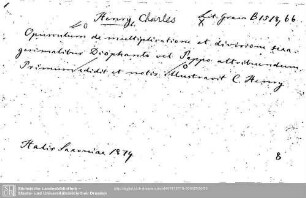 Henry, Charles
Lit. Graec. B 1519, 66
Opusculum de multiplicatione et divisione sexa-
gesimalibus Diophanto vel Pappo attribuendum
Primum edidit et notis illustravit C. Henry
Halis Saxoniae 1879
8
Sächsische Landesbibliothek -
Staats- und Universitätsbibliothek Dresden